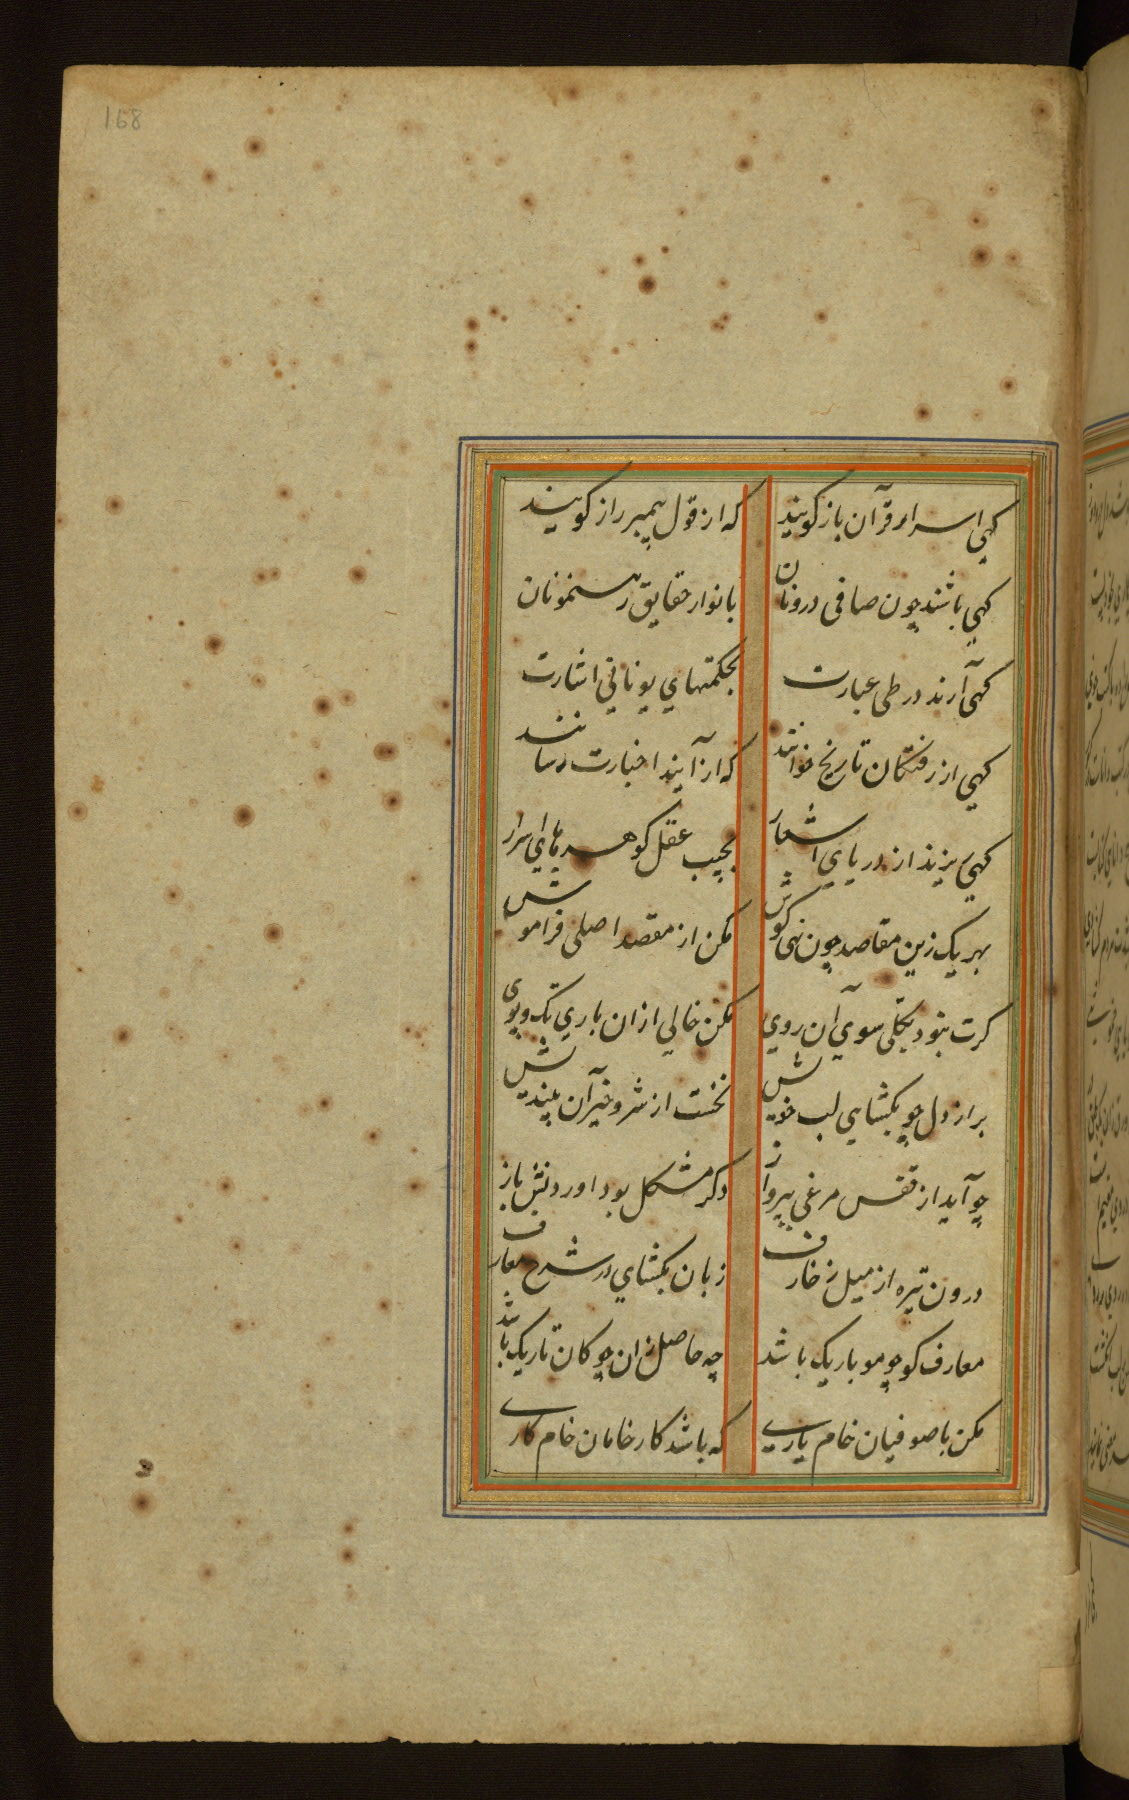 168
کهی اسرار قرآن باز کویند که از قول پیمبر راز کویند
کهی باشند چون صافی درونان بانوار حقایق رهنمونان
کهی آرند در طی عبارت بحکمتهای یونانی اشارت
کهی از رفتکان تاریخ خوانند که از آینده اخبارت رسانند
کهی ریزند از دریای اشعار بجیب عقل کوهرهای اسرار
بهر یک زین مقاصد چون نهی کوش مکن از مقصد اصلی فراموش
کرت نبود بکلی سوی آن روی مکن خالی ازان باری تک و پوی
بر از دل چو بکشایی لب خویش نخست از شر و خیر آن بیندیش
چو آید از قفس مرغی بپرواز دکر مشکل بود اوردنش باز
درون تیره از میل زخارف زبان بکشای در شرح معارف
معارف کو چو مو باریک باشد چه حاصل زان چو کان تاریک باشد
مکن با صوفیان خام یاری که باشد کار خامان خام کاری